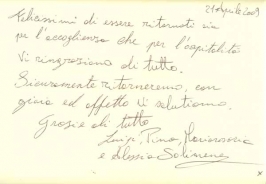 21 Aprile 2009
Felicissimi di essere ritornati sia
per l'accoglienza che per l'ospitalità
Vi ringraziamo di tutto.
Sicuramente ritorneremo, con
gioia ed affetto vi salutiamo.
Grazie di tutto
Luigi, Pina, Mariarosaria
e Alessia Solimene